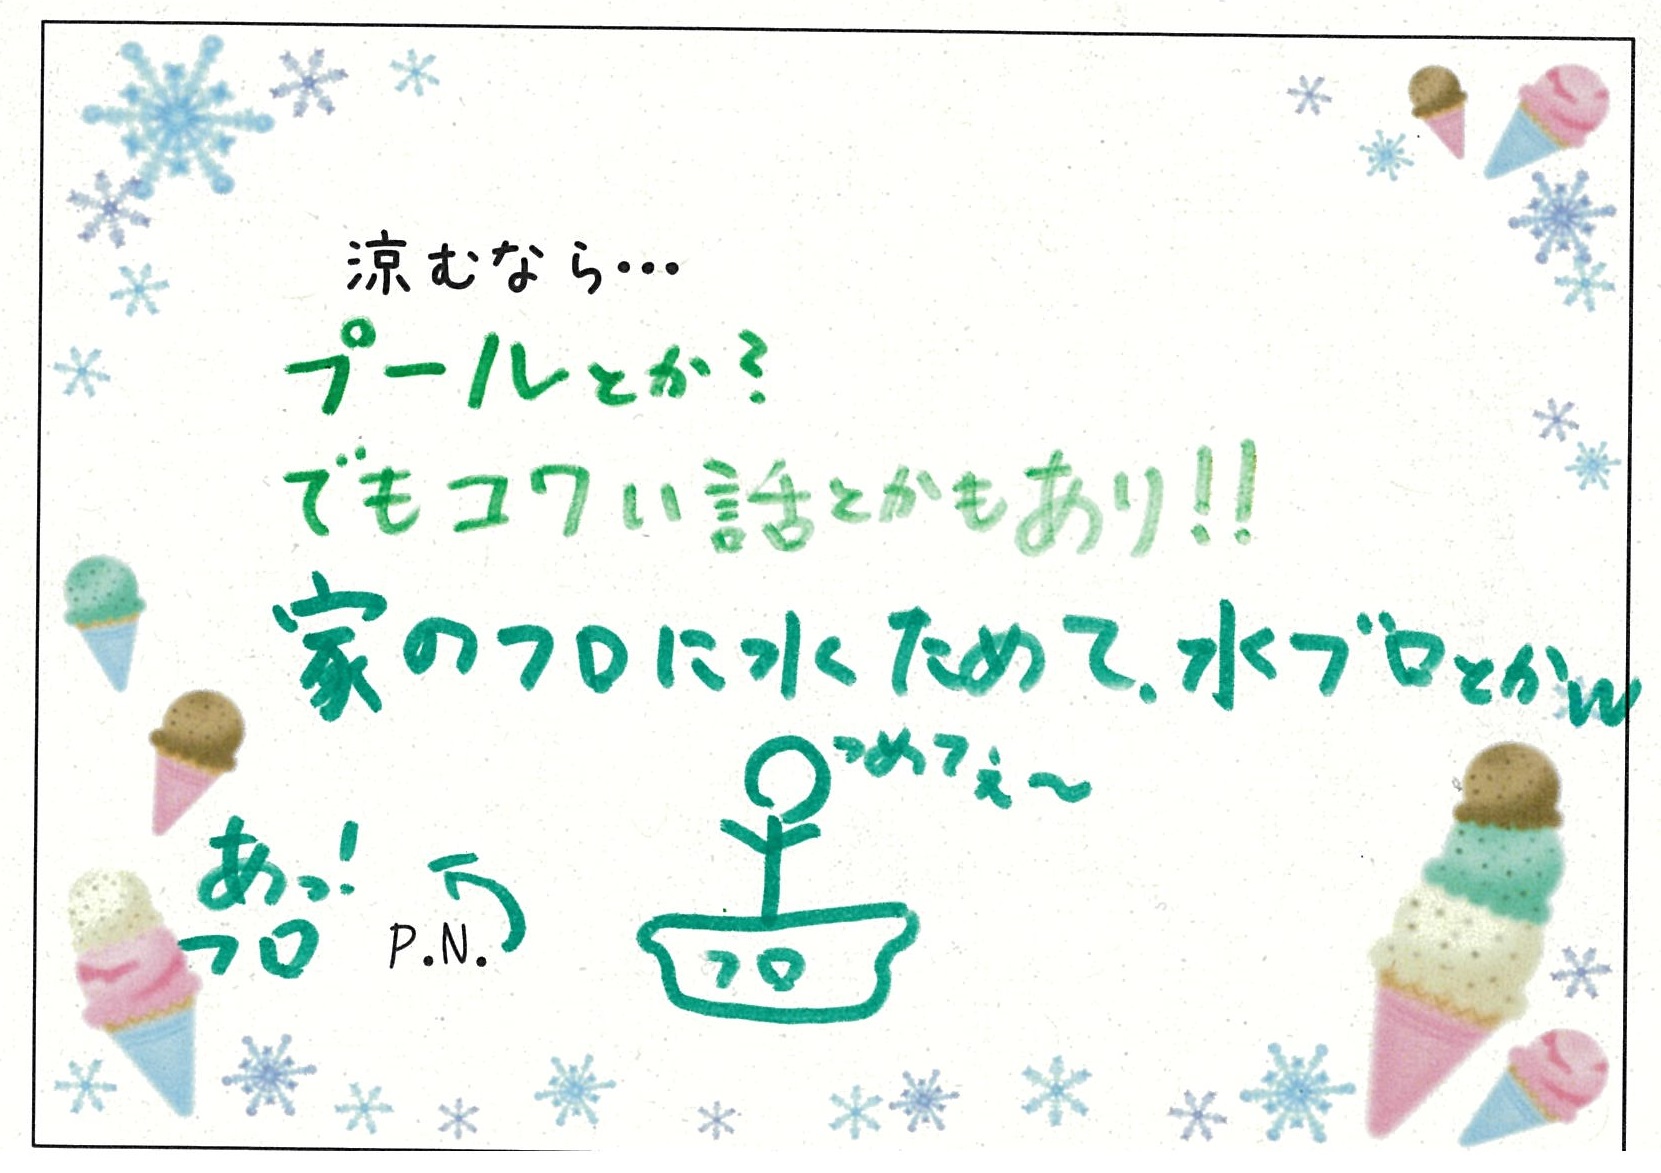 涼むなら…
プールとか?
でもコワい話とかもあり!!
家のフロに水ためて、水ブロとかw
つめてぇ〜
あっ!
フロ
P.N.
フロ